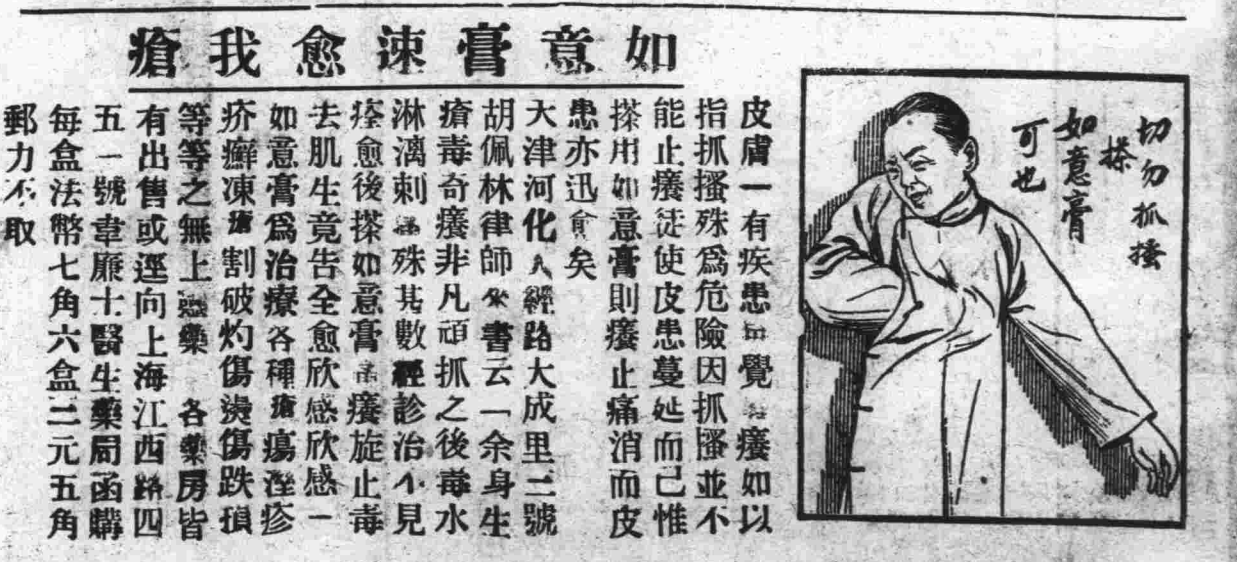 如意膏速愈我瘡
切勿抓搔
搽
如意膏
可也
皮膚一有疾患 覺 癢如以
指抓搔殊爲危險因抓搔並不
能止癢徒使皮患蔓延而已惟
搽用如意膏則癢止痛消而皮
患亦迅愈矣
天津河北 經路大成里二號
胡佩林律師來書云「余身生
瘡毒奇癢非凡頑抓之後毒水
淋漓刺痛殊甚數經診治不見
痊愈後搽如意膏 癢旋止毒
去肌生竟告全愈欣感欣感一
如意膏爲治療各種瘡瘍溼疹
疥癬凍瘡割破灼傷燙傷跌損
等等之無上靈藥 各藥房皆
有出售或逕向上海江西路四
五一號韋廉士醫生藥局函購
每盒法幣七角六盒三元五角
郵力不取